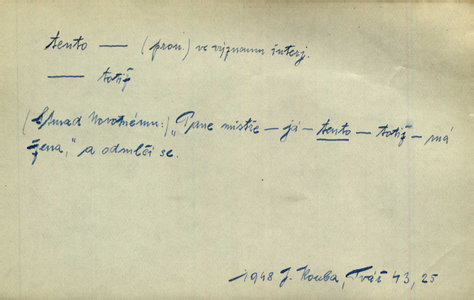 tento — (pron.) ve významu interj.
— totiž
(Novotnému:) „Pane mistře – já – tento – totiž – má
žena," a odmlčí se.
1948 J. Kouba, Tvář 43, 25